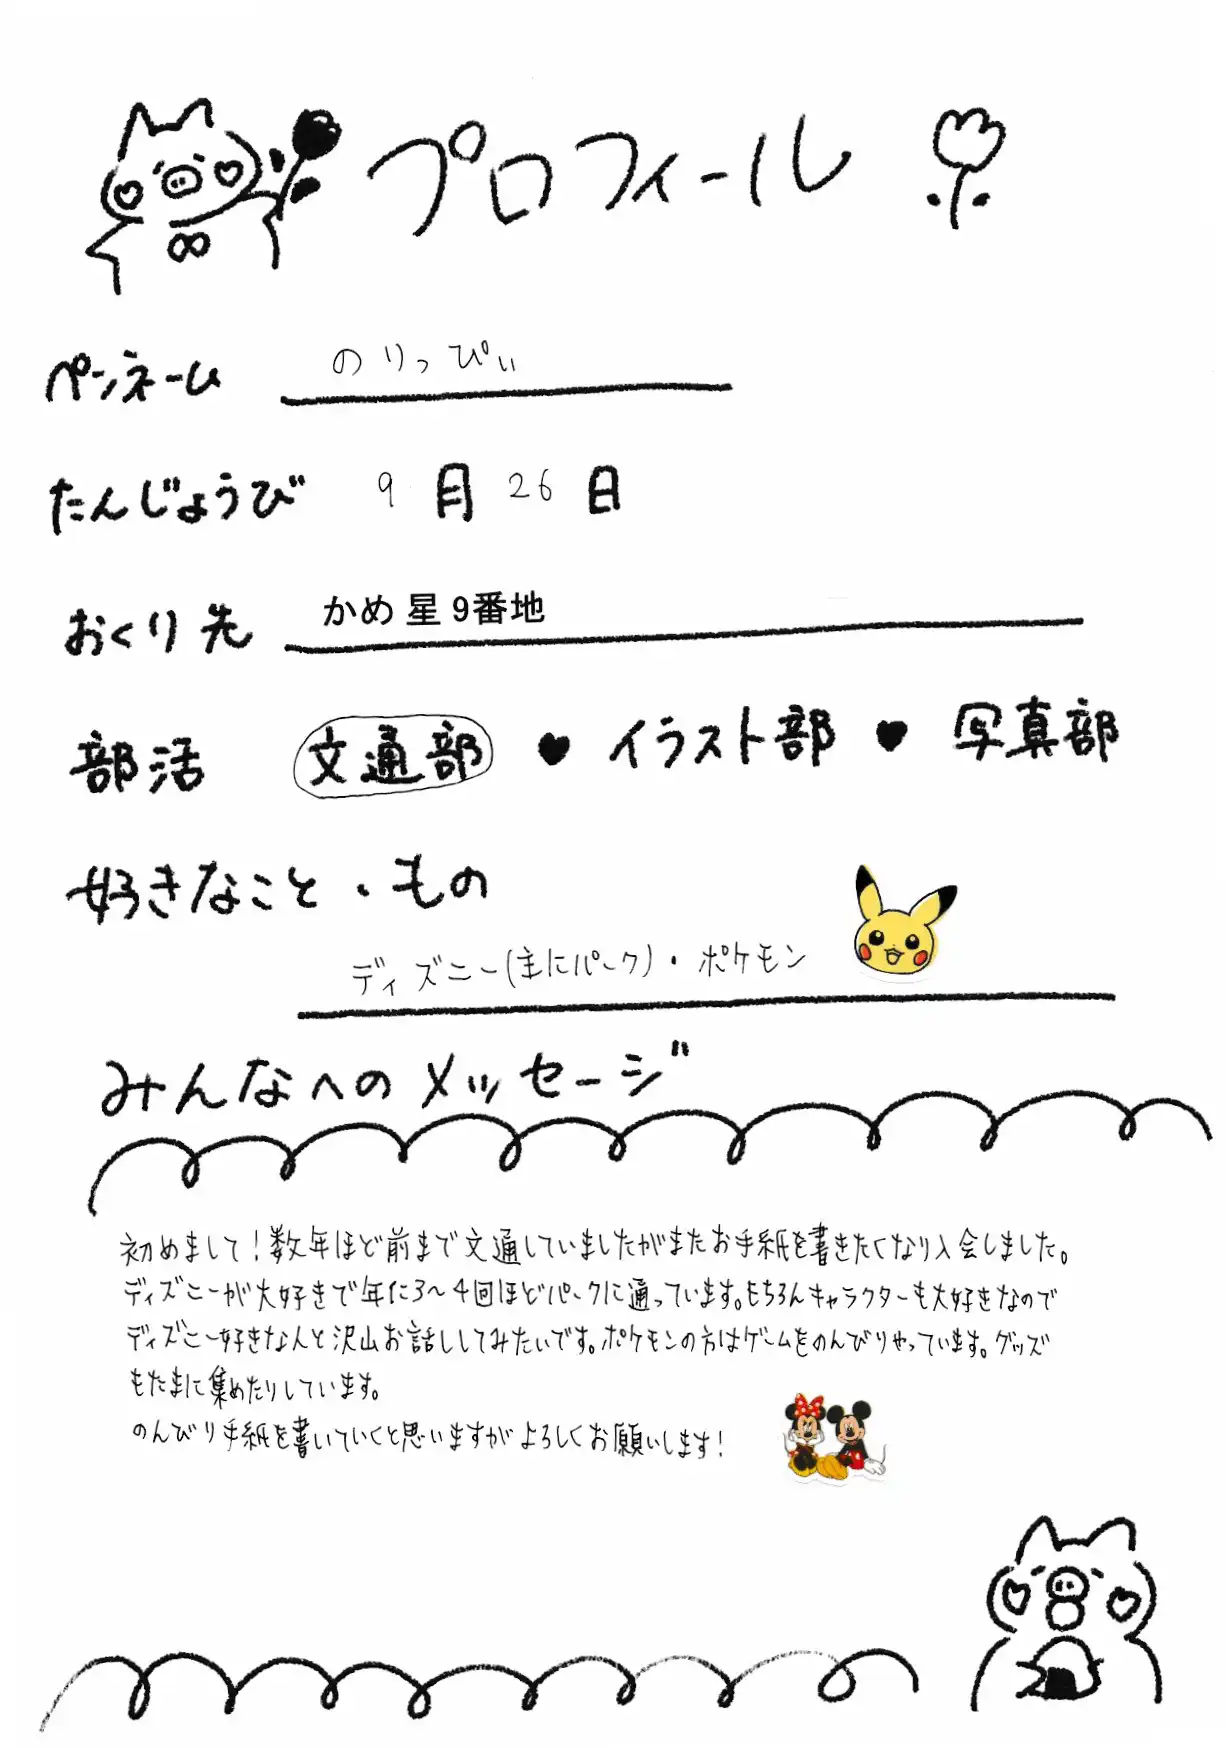 プロフィール
ペンネーム のりっぴぃ
たんじょうび 9月26日
おくり先 かめ星9番地
部活 文通部♥イラスト部♥写真部
好きなこと・もの
ディズニー(主にパーク)・ポケモン
みんなへのメッセージ
初めまして!数年ほど前まで文通していましたがまたお手紙を書きたくなり入会しました。
ディズニーが大好きで年に3〜4回ほどパークに通っています。もちろんキャラクターも大好きなので
ディズニー好きな人と沢山お話ししてみたいです。ポケモンの方はゲームをのんびりやっています。グッズ
もたまに集めたりしています。
のんびり手紙を書いていくと思いますがよろしくお願いします!